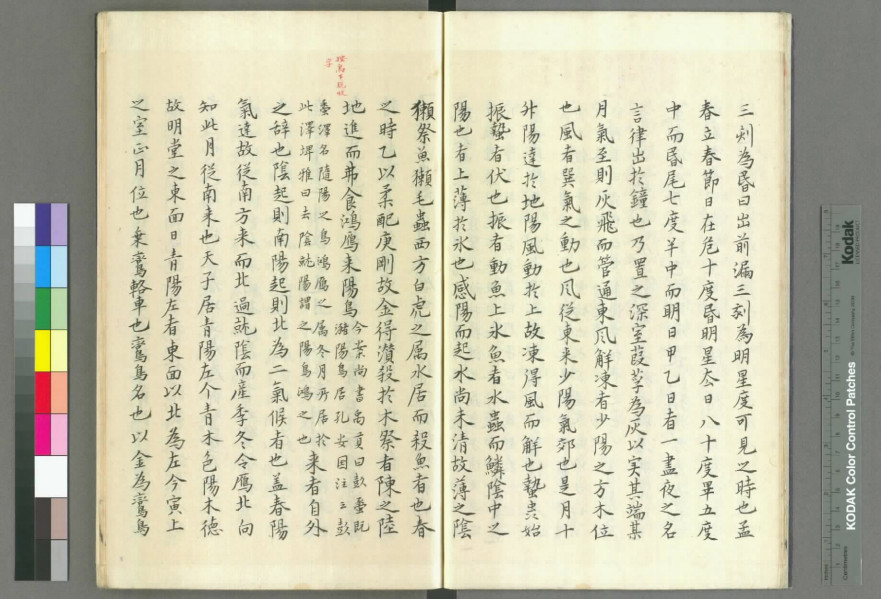 三刻為昏日出前漏三刻為明星度可見之時也孟
春立春節日在危十度昏明星去日八十度畢五度
中而昏尾七度半中而明日甲乙日者一晝夜之名
言律出於鐘也乃置之深室葭莩為灰以実其端其
月氣至則灰飛而管通東風解凍者少陽之方木位
也風者巽氣之動也風従東来少陽氣郊也是月十
升陽達於地陽風動於上故凍得風而解也蟄虫始
振蟄者伏也振者動魚上氷魚者水蟲而鱗陰中之
陽也者上薄於氷也感陽而起水尚未清故薄之陰
獺祭魚獺毛蟲西方白虎之属水居而殺魚者也春
之時乙以柔配庚剛故金得瓚殺於木祭者陳之陸
地進而弗食鴻鴈来陽鳥今案尚書禹貢曰彭蠡既
猪陽鳥居孔安国注云彭
蠡澤名随陽之鳥鴻鴈之属冬月所居於
此澤埤推曰去陰就陽謂之陽鳥鴻之也
来者自外
之辞也陰起則南陽起則北為二氣候者也盖春陽
氣達故従南方来而北過就陰而産季冬令鴈北向
知此月従南来也天子居青陽左个青木色陽木徳
故明堂之東面曰青陽左者東面以北為左今寅上
之室正月位也乗鸞輅車也鸞鳥名也以金為鸞鳥
Kodak
KODAK Color Control Patches